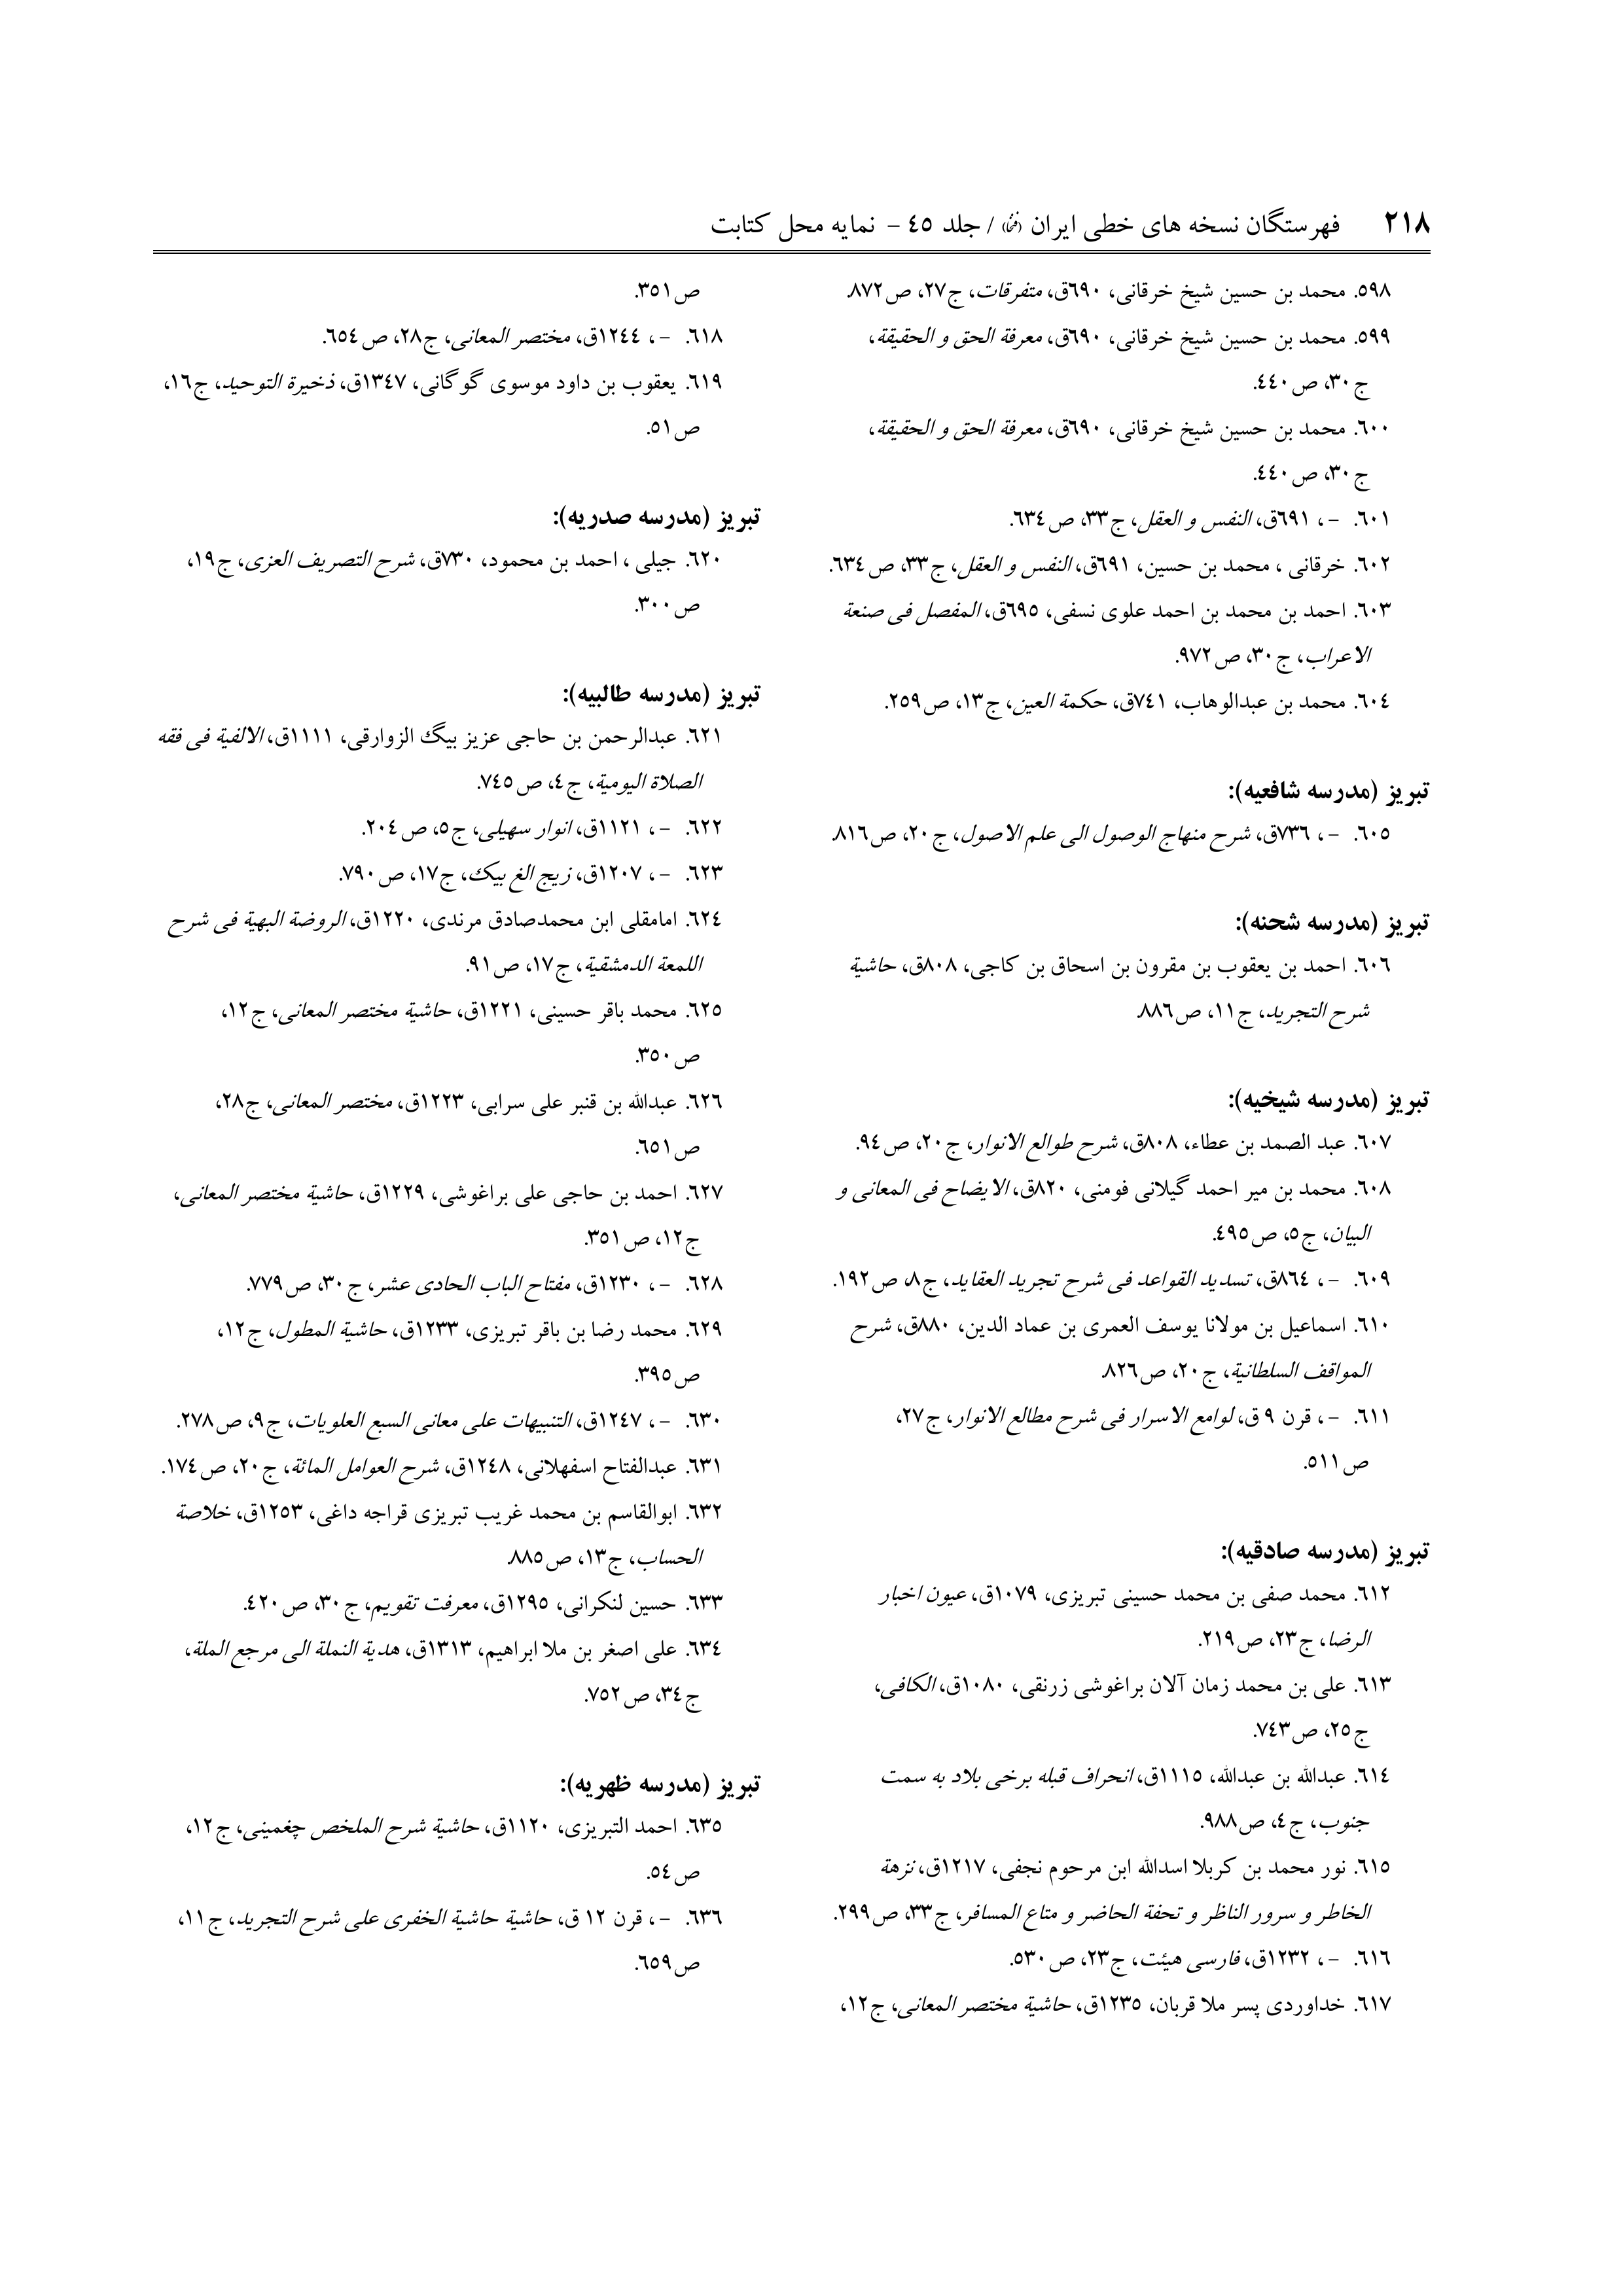 ۲۱۸ فهرستگان نسخه های خطی ایران (فنخا) / جلد ٤٥ - نمایه محل کتابت
۵۹۸. محمد بن حسین شیخ خرقانی، ٦۹۰ق، متفرقات، ج۲۷، ص۸۷۲.
۵۹۹. محمد بن حسین شیخ خرقانی، ٦۹۰ق، معرفة الحق و الحقیقة،
ج۳۰، ص٤٤۰.
٦۰۰. محمد بن حسین شیخ خرقانی، ٦۹۰ق، معرفة الحق و الحقیقة،
ج۳۰، ص٤٤۰.
٦۰۱. -، ٦۹۱ق، النفس و العقل، ج۳۳، ص٦۳٤.
٦۰۲. خرقانی ، محمد بن حسین، ٦۹۱ق، النفس و العقل، ج۳۳، ص٦۳٤.
٦۰۳. احمد بن محمد بن احمد علوی نسفی، ٦۹٥ق، المفصل فی صنعة
الاعراب، ج۳۰، ص۹۷۲.
٦۰٤. محمد بن عبدالوهاب، ۷٤۱ق، حکمة العین، ج۱۳، ص۲٥۹.
تبریز (مدرسه شافعیه):
٦۰٥. -، ۷۳٦ق، شرح منهاج الوصول الی علم الاصول، ج۲۰، ص۸۱٦.
تبریز (مدرسه شحنه):
٦۰٦. احمد بن یعقوب بن مقرون بن اسحاق بن کاجی، ۸۰۸ق، حاشیة
شرح التجرید، ج۱۱، ص۸۸٦.
تبریز (مدرسه شیخیه):
٦۰۷. عبد الصمد بن عطاء، ۸۰۸ق، شرح طوالع الانوار، ج۲۰، ص۹٤.
٦۰۸. محمد بن میر احمد گیلانی فومنی، ۸۲۰ق، الایضاح فی المعانی و
البیان، ج٥، ص٤۹٥.
٦۰۹. -، ۸٦٤ق، تسدید القواعد فی شرح تجرید العقاید، ج۸، ص۱۹۲.
٦۱۰. اسماعیل بن مولانا یوسف العمری بن عماد الدین، ۸۸۰ق، شرح
المواقف السلطانیة، ج۲۰، ص۸۲٦.
٦۱۱. -، قرن ۹ ق، لوامع الاسرار فی شرح مطالع الانوار، ج۲۷،
ص٥۱۱.
تبریز (مدرسه صادقیه):
٦۱۲. محمد صفی بن محمد حسینی تبریزی، ۱۰۷۹ق، عیون اخبار
الرضا، ج۲۳، ص۲۱۹.
٦۱۳. علی بن محمد زمان آلان براغوشی زرنقی، ۱۰۸۰ق، الکافی،
ج۲٥، ص۷٤۳.
٦۱٤. عبدالله بن عبدالله، ۱۱۱٥ق، انحراف قبله برخی بلاد به سمت
جنوب، ج٤، ص۹۸۸.
٦۱٥. نور محمد بن کربلا اسدالله ابن مرحوم نجفی، ۱۲۱۷ق، نزهة
الخاطر و سرور الناظر و تحفة الحاضر و متاع المسافر، ج۳۳، ص۲۹۹.
٦۱٦. -، ۱۲۳۲ق، فارسی هیئت، ج۲۳، ص٥۳۰.
٦۱۷. خداوردی پسر ملا قربان، ۱۲۳٥ق، حاشیة مختصر المعانی، ج۱۲،
ص۳٥۱.
٦۱۸. -، ۱۲٤٤ق، مختصر المعانی، ج۲۸، ص٦٥٤.
٦۱۹. یعقوب بن داود موسوی گوگانی، ۱۳٤۷ق، ذخیرة التوحید، ج۱٦،
ص٥۱.
تبریز (مدرسه صدریه):
٦۲۰. جیلی ، احمد بن محمود، ۷۳۰ق، شرح التصریف العزی، ج۱۹،
ص۳۰۰.
تبریز (مدرسه طالبیه):
٦۲۱. عبدالرحمن بن حاجی عزیز بیگ الزوارقی، ۱۱۱۱ق، الالفیة فی فقه
الصلاة الیومیة، ج٤، ص۷٤٥.
٦۲۲. -، ۱۱۲۱ق، انوار سهیلی، ج٥، ص۲۰٤.
٦۲۳. -، ۱۲۰۷ق، زیج الغ بیک، ج۱۷، ص۷۹۰.
٦۲٤. امامقلی ابن محمدصادق مرندی، ۱۲۲۰ق، الروضة البهیة فی شرح
اللمعة الدمشقیة، ج۱۷، ص۹۱.
٦۲٥. محمد باقر حسینی، ۱۲۲۱ق، حاشیة مختصر المعانی، ج۱۲،
ص۳٥۰.
٦۲٦. عبدالله بن قنبر علی سرابی، ۱۲۲۳ق، مختصر المعانی، ج۲۸،
ص٦٥۱.
٦۲۷. احمد بن حاجی علی براغوشی، ۱۲۲۹ق، حاشیة مختصر المعانی،
ج۱۲، ص۳٥۱.
٦۲۸. -، ۱۲۳۰ق، مفتاح الباب الحادی عشر، ج۳۰، ص۷۷۹.
٦۲۹. محمد رضا بن باقر تبریزی، ۱۲۳۳ق، حاشیة المطول، ج۱۲،
ص۳۹٥.
٦۳۰. -، ۱۲٤۷ق، التنبیهات علی معانی السبع العلویات، ج۹، ص۲۷۸.
٦۳۱. عبدالفتاح اسفهلانی، ۱۲٤۸ق، شرح العوامل المائة، ج۲۰، ص۱۷٤.
٦۳۲. ابوالقاسم بن محمد غریب تبریزی قراجه داغی، ۱۲٥۳ق، خلاصة
الحساب، ج۱۳، ص۸۸٥.
٦۳۳. حسین لنکرانی، ۱۲۹٥ق، معرفت تقویم، ج۳۰، ص٤۲۰.
٦۳٤. علی اصغر بن ملا ابراهیم، ۱۳۱۳ق، هدیة النملة الی مرجع الملة،
ج۳٤، ص۷٥۲.
تبریز (مدرسه ظهریه):
٦۳٥. احمد التبریزی، ۱۱۲۰ق، حاشیة شرح الملخص چغمینی، ج۱۲،
ص٥٤.
٦۳٦. -، قرن ۱۲ ق، حاشیة حاشیة الخفری علی شرح التجرید، ج۱۱،
ص٦٥۹.